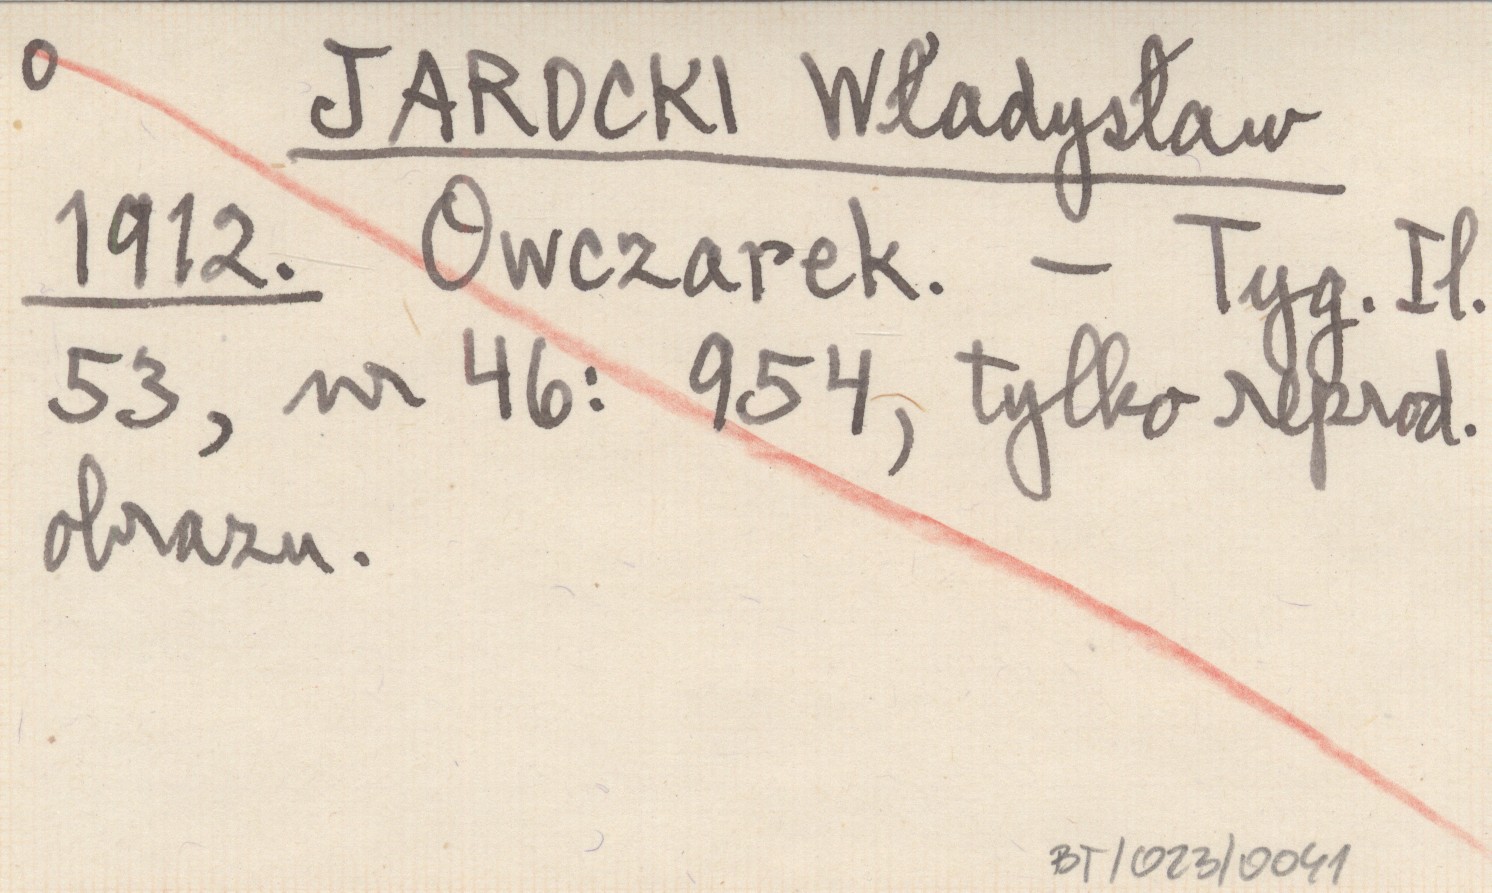 O JAROCKI Władysław
1912. Owczarek. – Tyg. Il.
53, nr 46: 954, tylko reprod.
obrazu.
BT/023/0041